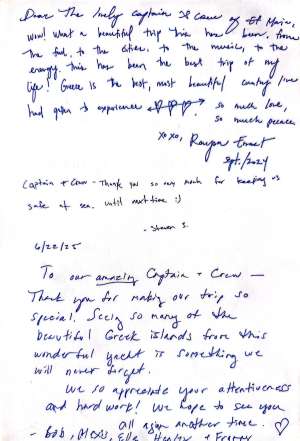 Dear The lovely captain & crew of
Wow! What a beautiful trip this has been. From
the food, to the cities. To the music, to the
energy, this has been the best trip of my
life! Greece is the best, most beautiful country I've
had gotten to experience → so much love,
so much peace
xoxo,
Sept./2024
Captain + Crew - Thank you so very much for keeping us
safe at sea. Until next time :)
- Steven S.
6/22/25
To our amazing Captain + Crew —
Thank you for making our trip so
special. Seeing so many of the
beautiful Greek islands from this
wonderful yacht is something we
will never forget.
We so appreciate your attentiveness
and hard work! We hope to see you
all again another time.
- Bob, Alexis, Ella, Hunter